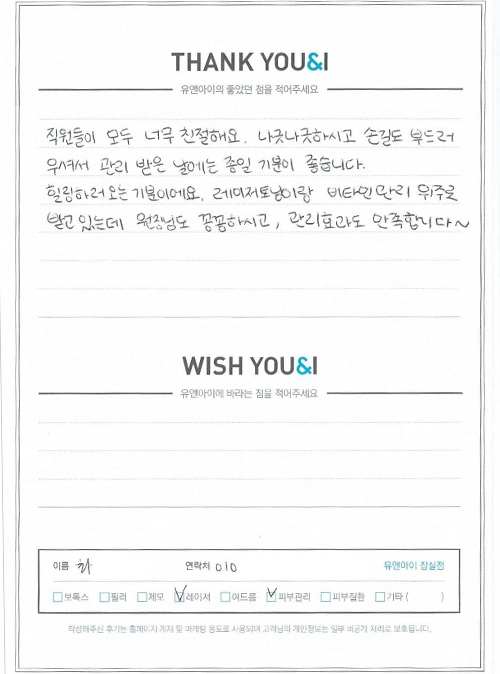 THANK YOU&I
유앤아이의 좋았던 점을 적어주세요
직원들이 모두 너무 친절해요. 나긋나긋하시고 손길도 부드러
우셔서 관리 받은 날에는 종일 기분이 좋습니다.
힐링하러 오는 기분이에요. 레이저토닝이랑 비타민관리 위주로
받고 있는데 원장님도 꼼꼼하시고, 관리효과도 만족합니다~
WISH YOU&I
유앤아이에 바라는 점을 적어주세요
이름 연락처 010 유앤아이 잠실점
보톡스 필러 제모 레이저 여드름 피부관리 피부질환 기타 ( )
작성해주신 후기는 홈페이지 게재 및 마케팅 용도로 사용되며 고객님의 개인정보는 일부 비공개 처리로 보호됩니다.